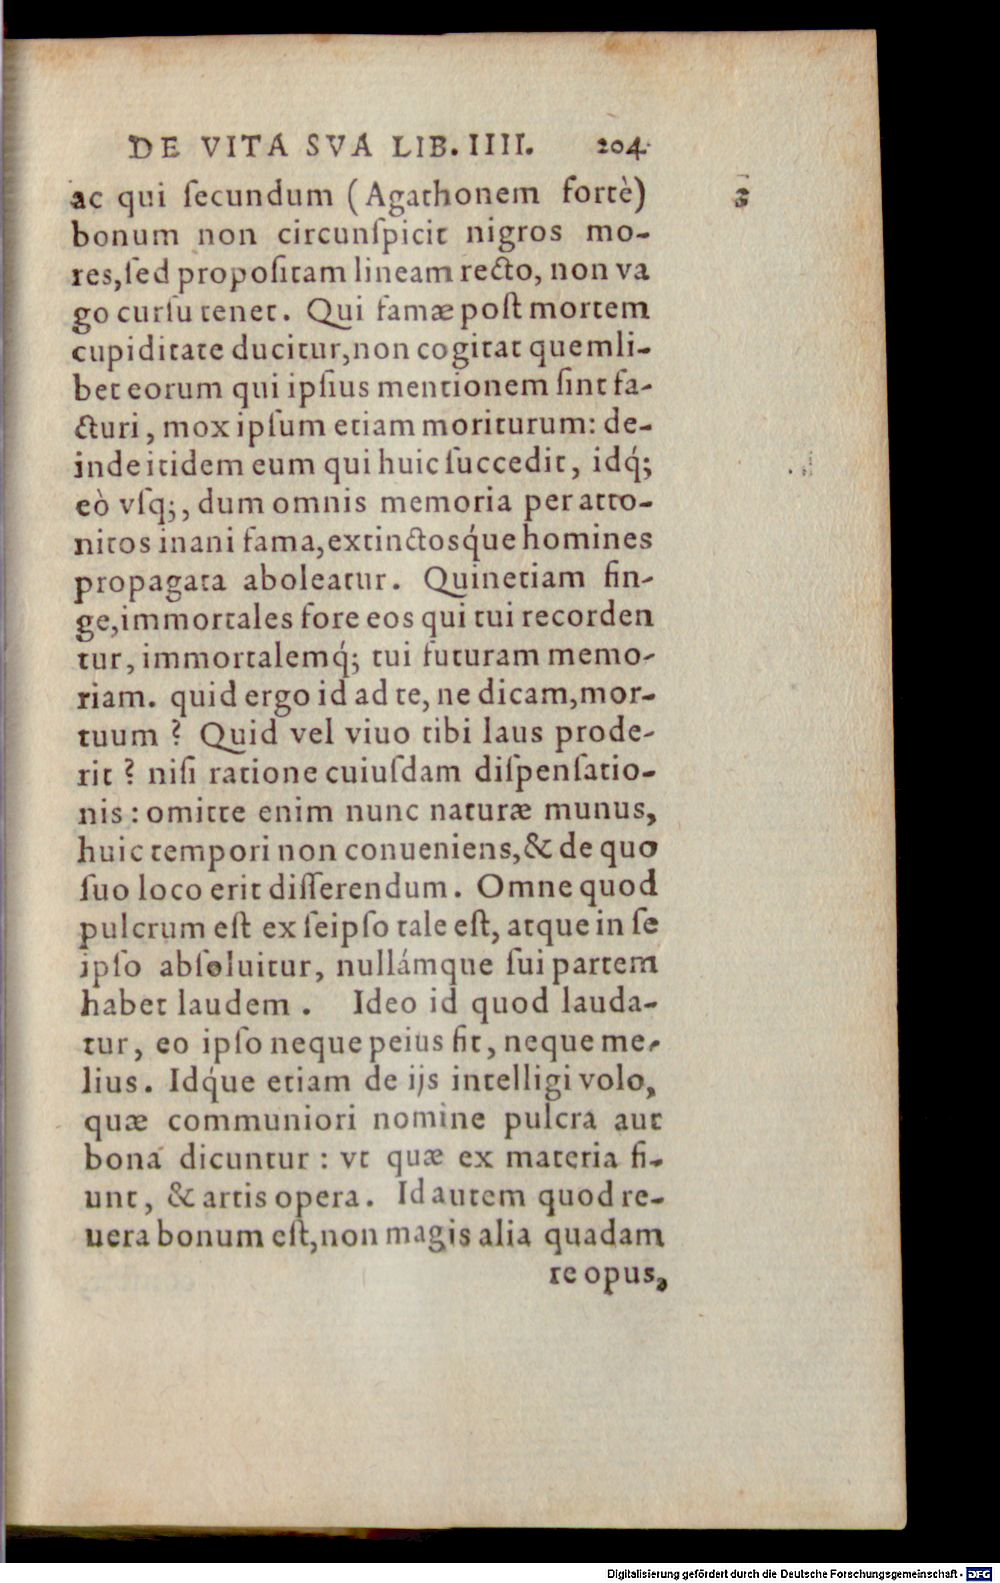 DE VITA SVA LIB. IIII. 204.
ac qui ſecundum (Agathonem fortè)
bonum non circunſpicit nigros mo-
res, ſed propoſitam lineam recto, non va
go curſu tenet. Qui famæ poſt mortem
cupiditate ducitur, non cogitat quemli-
bet eorum qui ipſius mentionem ſint fa-
cturi, mox ipſum etiam moriturum: de-
inde itidem eum qui huic ſuccedit, idq́;
eò vſq;, dum omnis memoria per atto-
nitos inani fama, extinctosq́ue homines
propagata aboleatur. Quinetiam fin-
ge, immortales fore eos qui tui recorden
tur, immortalemq́; tui futuram memo-
riam. quid ergo id ad te, ne dicam, mor-
tuum ? Quid vel viuo tibi laus prode-
rit ? niſi ratione cuiuſdam diſpenſatio-
nis : omitte enim nunc naturæ munus,
huic tempori non conueniens, & de quo
ſuo loco erit diſſerendum. Omne quod
pulcrum eſt ex ſeipſo tale eſt, atque in ſe
ipſo abſoluitur, nullámque ſui partem
habet laudem . Ideo id quod lauda-
tur, eo ipſo neque peius fit, neque me-
lius. Idq́ue etiam de ijs intelligi volo,
quæ communiori nomine pulcra aut
bona dicuntur : vt quæ ex materia fi-
unt, & artis opera. Id autem quod re-
uera bonum eſt, non magis alia quadam
re opus,
Digitalisierung gefördert durch die Deutsche Forschungsgemeinschaft - DFG